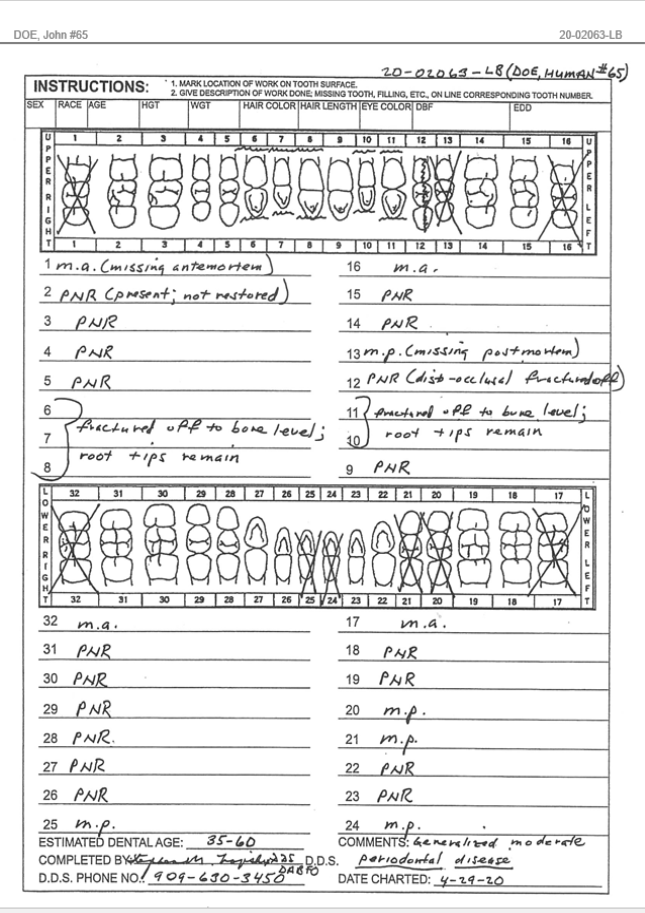 DOE, John #65 20-02063-LB
20-02063-LB (DOE, HUMAN #65)
INSTRUCTIONS: 1. MARK LOCATION OF WORK ON TOOTH SURFACE.
2. GIVE DESCRIPTION OF WORK DONE; MISSING TOOTH, FILLING, ETC., ON LINE CORRESPONDING TOOTH NUMBER.
SEX RACE AGE HGT WGT HAIR COLOR HAIR LENGTH EYE COLOR DBF EDD
UPPER RIGHT 1 2 3 4 5 6 7 8 9 10 11 12 13 14 15 16 UPPER LEFT
1 2 3 4 5 6 7 8 9 10 11 12 13 14 15 16
1 m.a. (missing antemortem) 16 m.a.
2 PNR (present; not restored) 15 PNR
3 PNR 14 PNR
4 PNR 13 m.p. (missing postmortem)
5 PNR 12 PNR (disto-occlusal fractured off)
6 11 fractured off to bone level;
7 fractured off to bone level; 10 root tips remain
8 root tips remain 9 PNR
LOWER RIGHT 32 31 30 29 28 27 26 25 24 23 22 21 20 19 18 17 LOWER LEFT
32 31 30 29 28 27 26 25 24 23 22 21 20 19 18 17
32 m.a. 17 m.a.
31 PNR 18 PNR
30 PNR 19 PNR
29 PNR 20 m.p.
28 PNR. 21 m.p.
27 PNR 22 PNR
26 PNR 23 PNR
25 m.p. 24 m.p.
ESTIMATED DENTAL AGE: 35-60 COMMENTS: Generalized moderate
COMPLETED BY DDS D.D.S. periodontal disease
DABFO
D.D.S. PHONE NO.: 909-630-3450 DATE CHARTED: 4-29-20